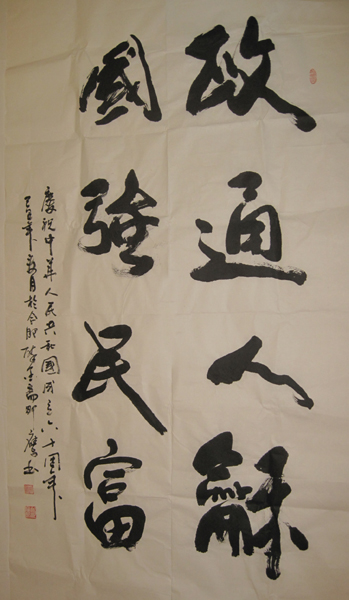 政通人龢
國強民富
慶祝中華人民共和國成立六十周年
己丑年月於合肥